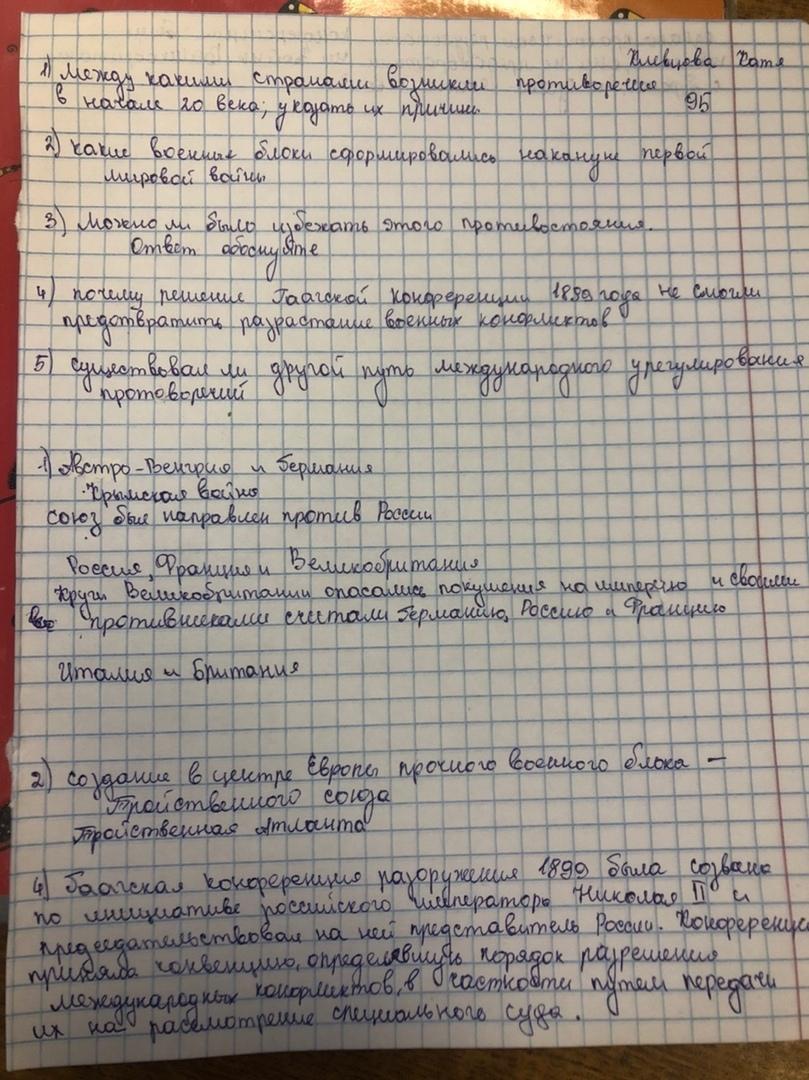 Клевцова Катя
1) Между какими странами возникли противоречия
в начале 20 века, указать их причины.
9Б
2) какие военные блоки сформировались накануне первой
мировой войны
3) Можно ли было избежать этого противостояния.
Ответ обоснуйте
4) почему решение Гаагской конференции 1899 года не смогли
предотвратить разрастание военных конфликтов
5) существовал ли другой путь международного урегулирования
протоворечий
1) Австро-Венгрия и Германия
Крымская война
союз был направлен против России
Россия, Франция и Великобритания
Круги Великобритании опасались покушения на империю и своими
противниками считали Германию, Россию и Францию
Италия и Британия
2) создание в центре Европы прочного военного блока —
Тройственного союза
Тройственная Атланта
4) Гаагская конференция разоружения 1899 была созвана
по инициативе российского императора Николая II и
председательствовал на ней представитель России. Конференция
приняла конвенцию, определявшую порядок разрешения
международных конфликтов, в частности путем передачи
их на рассмотрение специального суда.